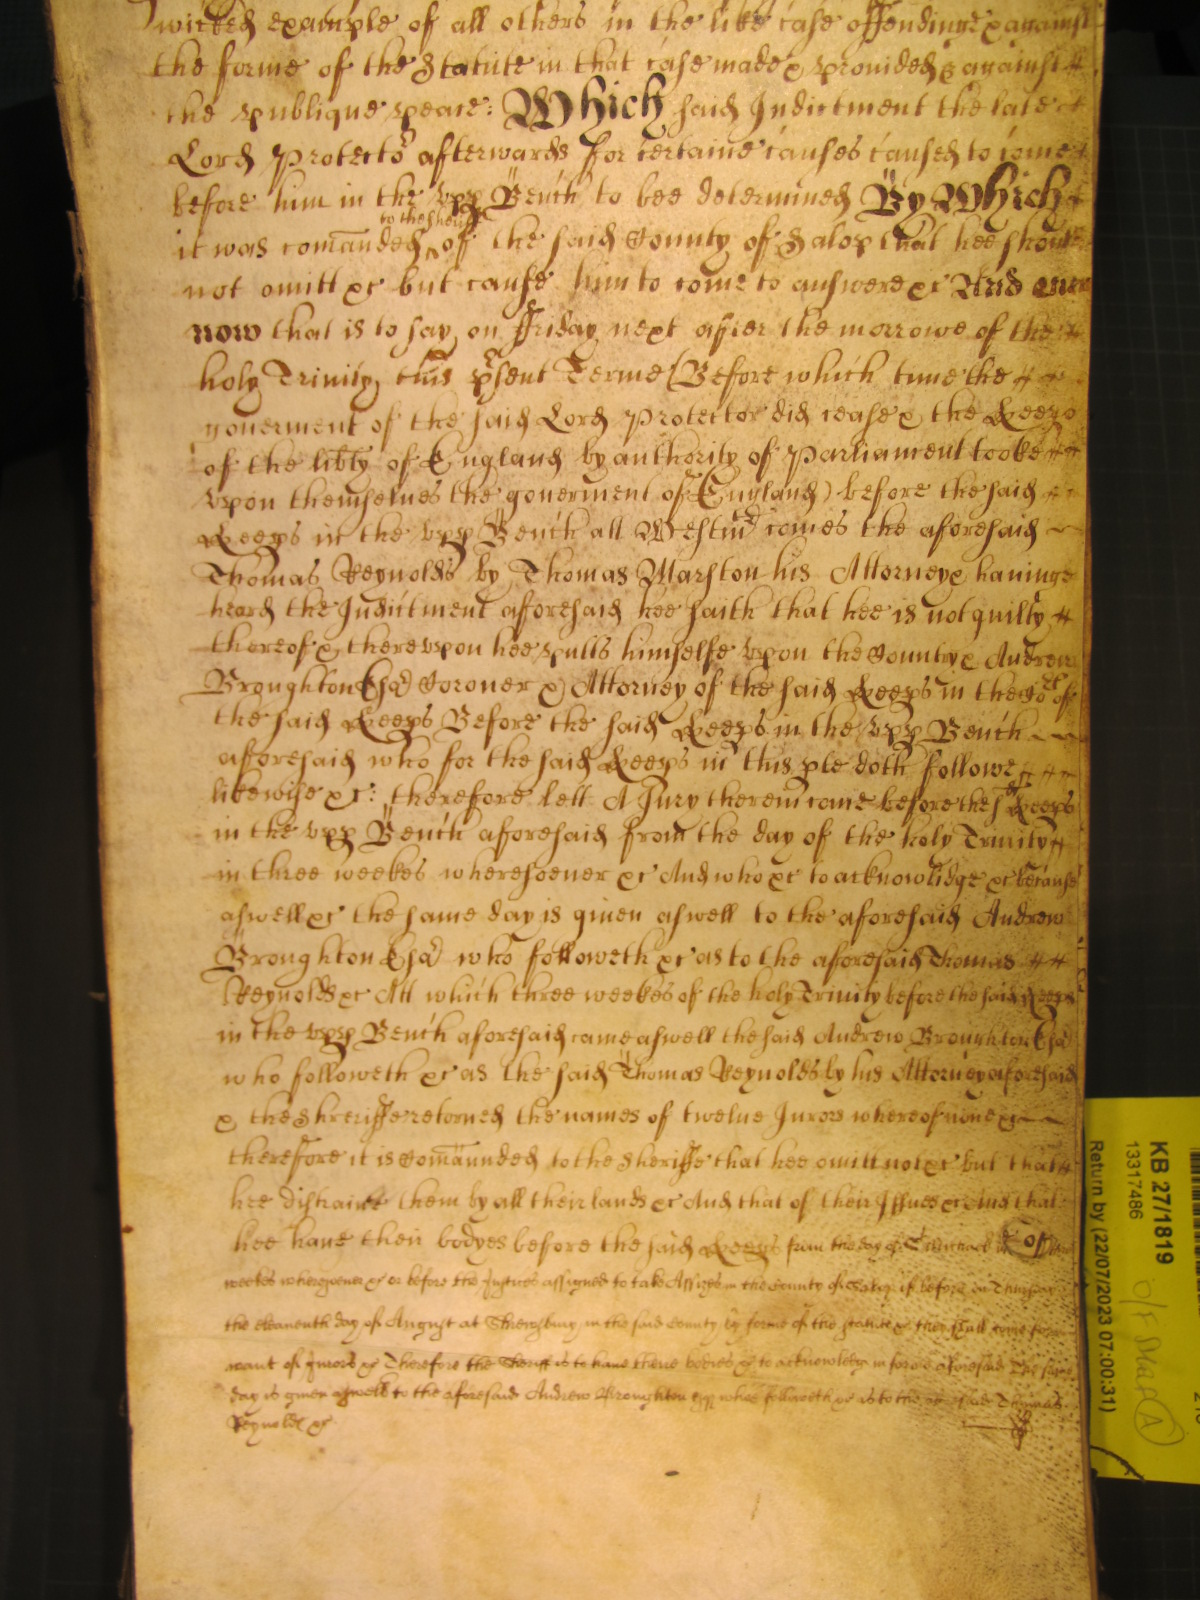 wicked example of all others in the like case offendinge & against
the forme of the Statute in that case made & provided & against
the publique peace: Which said Indictment the late
Lord Protector afterwards for certaine causes caused to come
before him in the vpp Bench to bee determined By Which
to the sheriffe
it was comanded of the said County of Salop that hee should
not omitt &c but cause him to come to answere &c And
now that is to say on ffriday next after the morrowe of the
holy Trinity this psent Terme (Before which time the
gouerment of the said Lord Protector did cease & the Keeps
of the libty of England by authority of Parliament tooke
vpon themselues the gouerment of England) before the said
Keeps in the vpp Bench att Westmr comes the aforesaid
Thomas Reynolds by Thomas Marston his Attorney & hauinge
heard the Indictment aforesaid hee saith that hee is not guilty
thereof & therevpon hee putts himselfe vpon the Country & Andrew
Broughton Esq Coroner & Attorney of the said Keeps in the Cort of
the said Keeps Before the said Keeps in the vpp Bench
aforesaid who for the said Keeps in this ple doth followe
likewise &c: therefore lett A Jury therein come before the sd Keeps
in the vpp Bench aforesaid from the day of the holy Trinity
in three weekes wheresoeuer &c And who &c to acknowlidge &c because
aswell &c the same day is giuen aswell to the aforesaid Andrew
Broughton Esq who followeth &c as to the aforesaid Thomas
Reynolds &c Att which three weekes of the holy Trinity before the said Keeps
in the vpp Bench aforesaid came aswell the said Andrew Broughton Esq
who followeth &c as the said Thomas Reynolds by his Attorney aforesaid
& the Shreriffe retorned the names of twelue Jurors whereof none &c
therefore it is Comaunded to the Sheriffe that hee omitt not &c but that
hee distraine them by all their lands &c And that of their Issues &c And that
hee haue their bodyes before the said Keeps from the day of St Michael in
weekes wheresoeuer &c or before the Justices assigned to take Assizes in the County of Salop if before on Thursday
the eleauenth day of August at Shrewsbury in the said County by forme of the statute &c they shall come for
want of Jurors &c Therefore the Sheriff is to haue theire bodies &c to acknowledg in forme aforesaid The same
day is giuen aswell to the aforesaid Andrew Broughton Esq whoe followeth &c as to the aforesaid Thomas
Reynolds &c
KB 27/1819
13317486
Return by (22/07/2023 07:00:31)